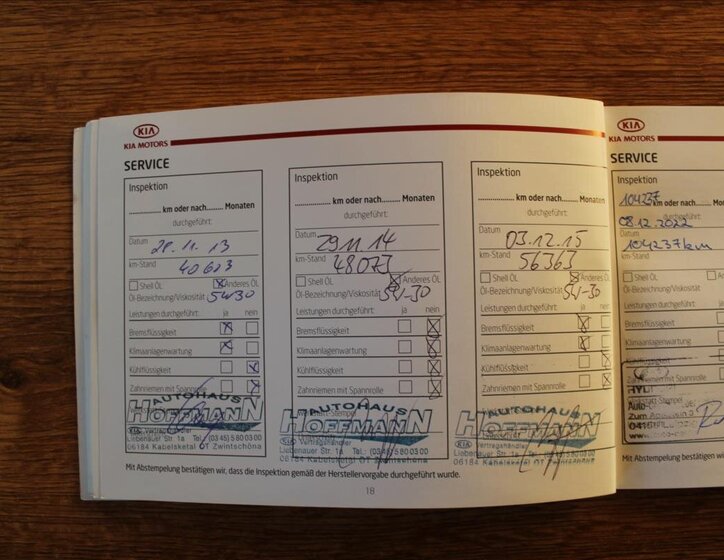 KIA
KIA MOTORS
SERVICE
Inspektion
km oder nach......... Monaten
durchgeführt:
Datum 28.11.13
km-Stand 40623
Shell ÖL Anderes ÖL
Öl-Bezeichnung/Viskosität 5W30
Leistungen durchgeführt: ja nein
Bremsflüssigkeit
Klimaanlagenwartung
Kühlflüssigkeit
Zahnriemen mit Spannrolle
AUTOHAUS
HOFFMANN
KIA Vertragshändler
Liebenauer Str. 1a Tel.: (0345) 5 80 03 00
06184 Kabelsketal OT Zwintschöna
Inspektion
km oder nach......... Monaten
durchgeführt:
Datum 29.11.14
km-Stand 48073
Shell ÖL Anderes ÖL
Öl-Bezeichnung/Viskosität 5W-30
Leistungen durchgeführt: ja nein
Bremsflüssigkeit
Klimaanlagenwartung
Kühlflüssigkeit
Zahnriemen mit Spannrolle
AUTOHAUS
HOFFMANN
KIA Vertragshändler
Liebenauer Str. 1a Tel.: (0345) 5 80 03 00
06184 Kabelsketal OT Zwintschöna
Inspektion
km oder nach......... Monaten
durchgeführt:
Datum 03.12.15
km-Stand 56363
Shell ÖL Anderes ÖL
Öl-Bezeichnung/Viskosität 5W-30
Leistungen durchgeführt: ja nein
Bremsflüssigkeit
Klimaanlagenwartung
Kühlflüssigkeit
Zahnriemen mit Spannrolle
AUTOHAUS
HOFFMANN
KIA Vertragshändler
Liebenauer Str. 1a Tel.: (0345) 5 80 03 00
06184 Kabelsketal OT Zwintschöna
Mit Abstempelung bestätigen wir, dass die Inspektion gemäß der Herstellervorgabe durchgeführt wurde.
18
KIA
KIA MOTORS
SERVICE
Inspektion
104237 km oder nach......... Mona
durchgeführt:
08.12.2022
104237km
Shell ÖL
Öl-Bezeichnung/Viskosität
Leistungen durchgeführt:
Bremsflüssigkeit
Klimaanlagenwartung
Kühlflüssigkeit
Zahnriemen mit Spannr
Mit Abstempelung bestätigen wir, d